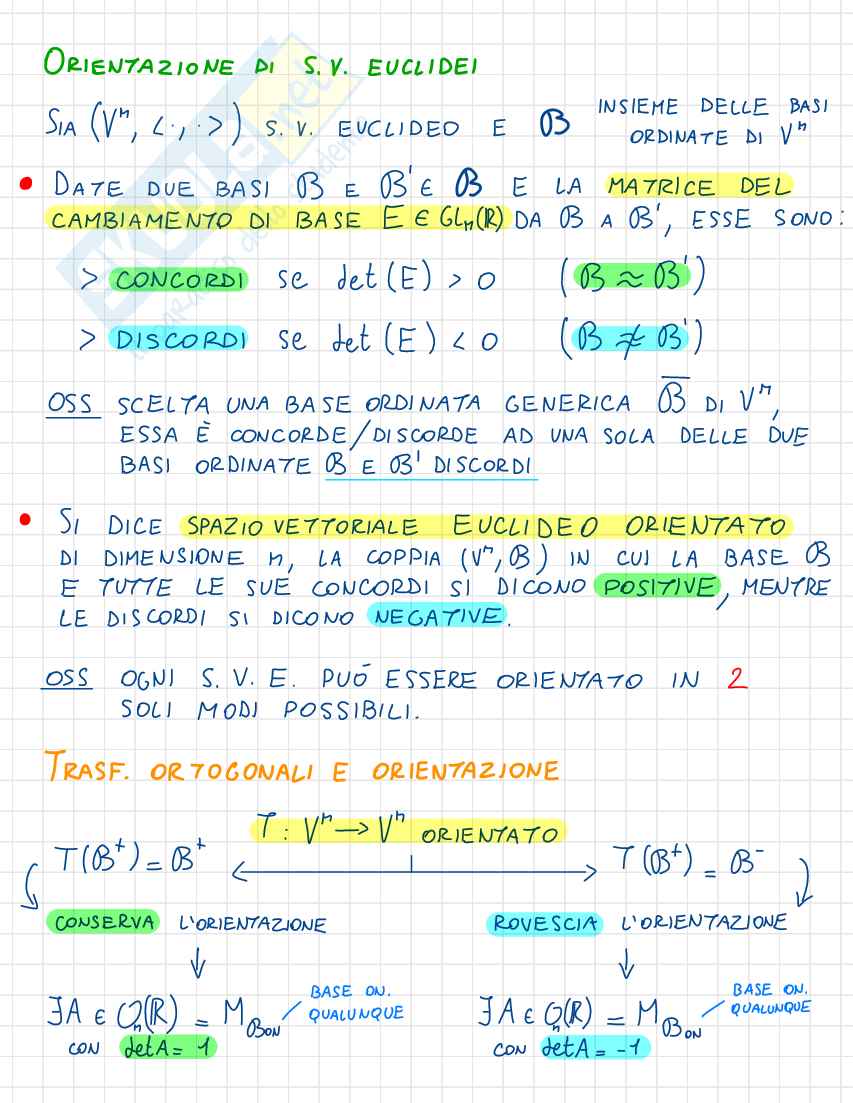 ORIENTAZIONE DI S.V. EUCLIDEI
SIA (Vⁿ, <·,·>) S.V. EUCLIDEO E 𝓑 INSIEME DELLE BASI
ORDINATE DI Vⁿ
• DATE DUE BASI B E B' ∈ 𝓑 E LA MATRICE DEL
CAMBIAMENTO DI BASE E ∈ GLₙ(ℝ) DA B A B', ESSE SONO:
> CONCORDI se det(E) > 0 (B ≈ B')
> DISCORDI se det(E) < 0 (B ≉ B')
OSS SCELTA UNA BASE ORDINATA GENERICA B̅ DI Vⁿ,
ESSA È CONCORDE/DISCORDE AD UNA SOLA DELLE DUE
BASI ORDINATE B E B' DISCORDI
• SI DICE SPAZIO VETTORIALE EUCLIDEO ORIENTATO
DI DIMENSIONE n, LA COPPIA (Vⁿ, B) IN CUI LA BASE B
E TUTTE LE SUE CONCORDI SI DICONO POSITIVE, MENTRE
LE DISCORDI SI DICONO NEGATIVE.
OSS OGNI S.V.E. PUÓ ESSERE ORIENTATO IN 2
SOLI MODI POSSIBILI.
TRASF. ORTOGONALI E ORIENTAZIONE
T: Vⁿ → Vⁿ ORIENTATO
T(B⁺) = B⁺ T(B⁺) = B⁻
CONSERVA L'ORIENTAZIONE ROVESCIA L'ORIENTAZIONE
∃A ∈ Oₙ(ℝ) = M_B_ON BASE ON.
QUALUNQUE
CON det A = 1
∃A ∈ Oₙ(ℝ) = M_B_ON BASE ON.
QUALUNQUE
CON det A = -1